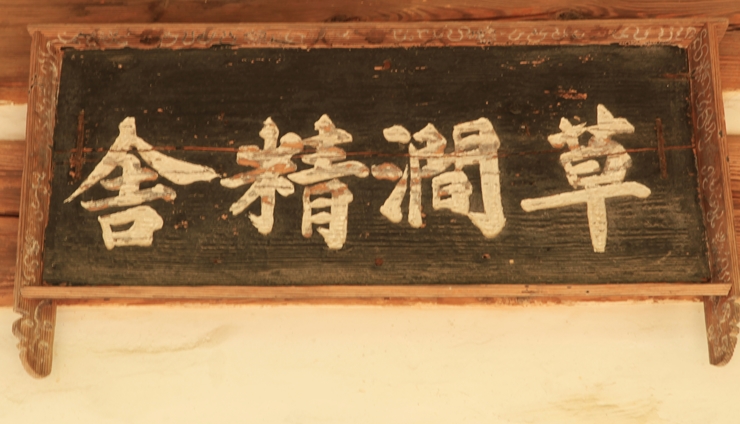 草澗精舍